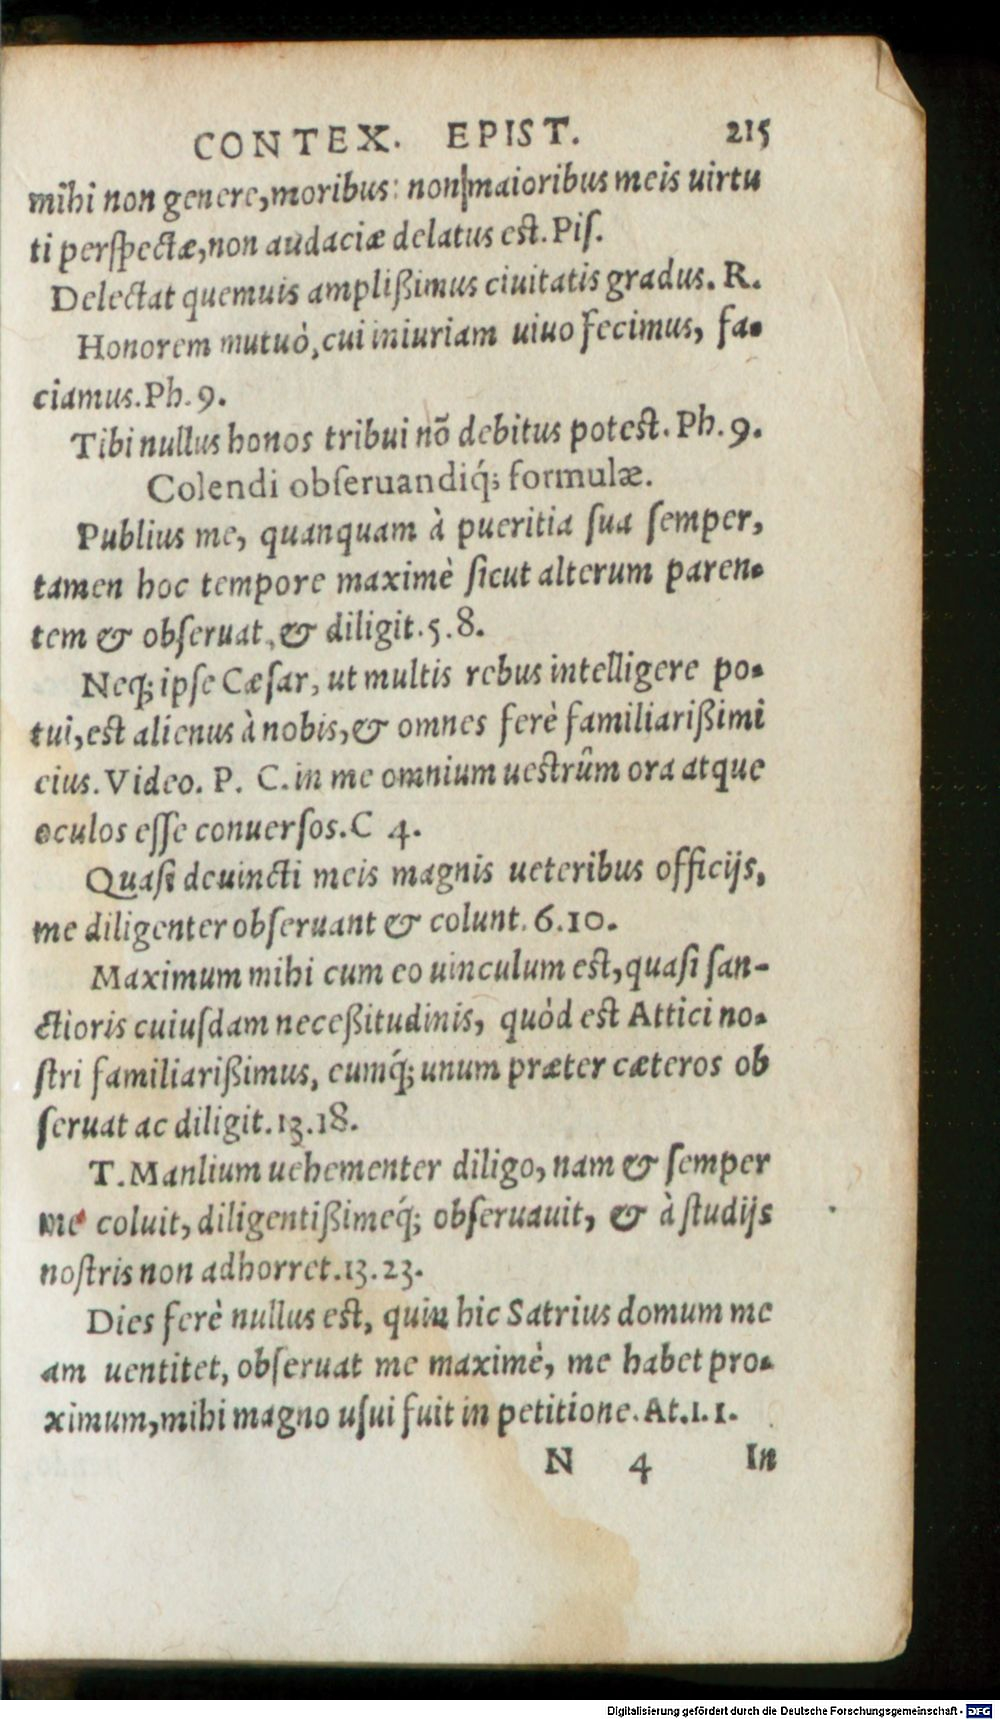 CONTEX. EPIST. 215
mihi non genere, moribus: non maioribus meis uirtu
ti perspectæ, non audaciæ delatus est. Pis.
Delectat quemuis amplißimus ciuitatis gradus. R.
Honorem mutuò, cui iniuriam uiuo fecimus, fa-
ciamus. Ph. 9.
Tibi nullus honos tribui nõ debitus potest. Ph. 9.
Colendi obseruandiq́; formulæ.
Publius me, quanquam à pueritia sua semper,
tamen hoc tempore maximè sicut alterum paren-
tem & obseruat, & diligit. 5. 8.
Neq; ipse Cæsar, ut multis rebus intelligere po-
tui, est alienus à nobis, & omnes ferè familiarißimi
eius. Video. P. C. in me omnium uestrûm ora atque
oculos esse conuersos. C 4.
Quasi deuincti meis magnis ueteribus officijs,
me diligenter obseruant & colunt. 6. 10.
Maximum mihi cum eo uinculum est, quasi san-
ctioris cuiusdam neceßitudinis, quòd est Attici no-
stri familiarißimus, eumq́; unum præter cæteros ob
seruat ac diligit. 13. 18.
T. Manlium uehementer diligo, nam & semper
me coluit, diligentißimeq́; obseruauit, & à studijs
nostris non adhorret. 13. 23.
Dies ferè nullus est, quin hic Satrius domum me
am uentitet, obseruat me maximè, me habet pro-
ximum, mihi magno usui fuit in petitione. At. 1. 1.
N 4 In
Digitalisierung gefördert durch die Deutsche Forschungsgemeinschaft - DFG